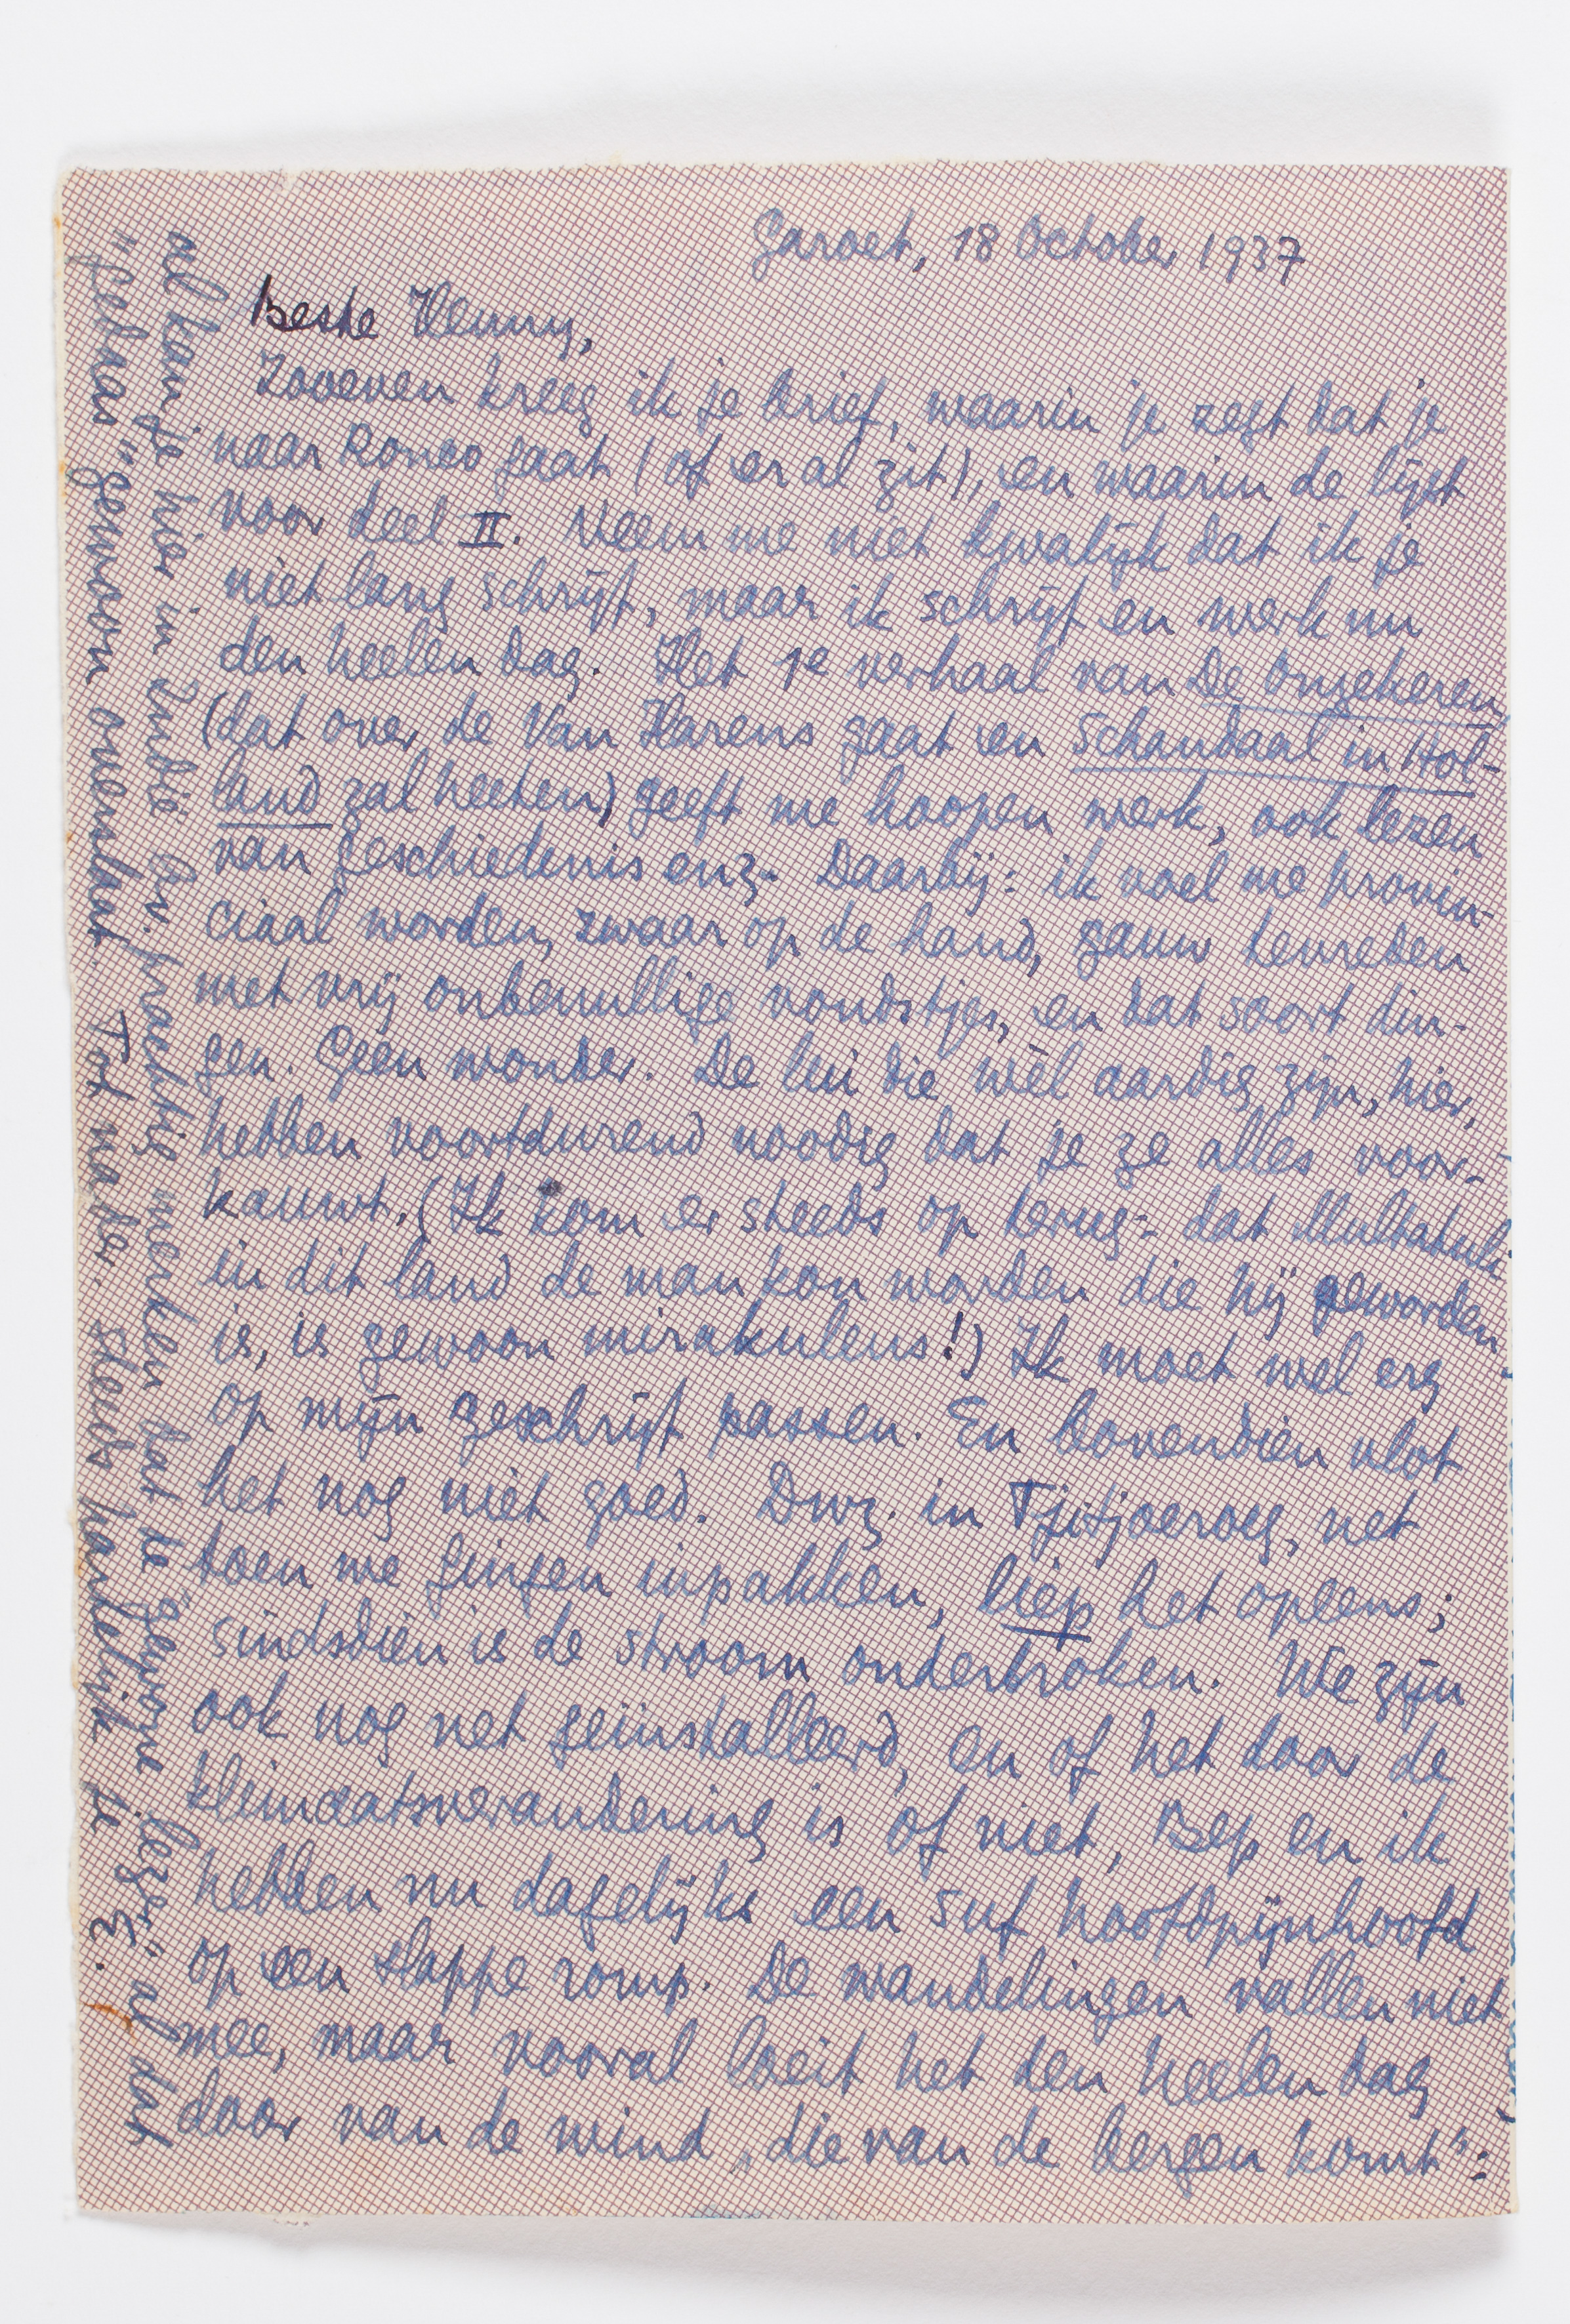 Garoet, 18 October 1937
Beste Henny,
Zooeven kreeg ik je brief, waarin je zegt dat je
naar Roneo gaat (of er al zit), en waarin de lijst
voor deel II. Neem me niet kwalijk dat ik je
niet lang schrijf, maar ik schrijf en werk nu
den heelen dag. Het 1e verhaal van De Onzekeren
(dat over de Van Harens gaat en Schandaal in Hol-
land zal heeten) geeft me hoopen werk, ook lezen
van geschiedenis enz. Daarbij: ik voel me provin-
ciaal worden, zwaar op de hand, gauw tevreden
met vrij onbenullige vondstjes, en dat soort din-
gen. Geen wonder. De lui die wèl aardig zijn, hier,
hebben voortdurend noodig dat je ze alles voor-
kauwt. (Ik kom er steeds op terug: dat Multatuli
in dit land de man kon worden die hij geworden
is, is gewoon mirakuleus!) Ik moet wel erg
op mijn geschrijf passen. En bovendien vlot
het nog niet goed. D.w.z. in Tjitjoeroeg, net
toen we gingen inpakken, liep het opeens;
sindsdien is de stroom onderbroken. We zijn
ook nog net geïnstalleerd, en of het door de
klimaatsverandering is of niet, Bep en ik
hebben nu dagelijks een suf hoofdpijnhoofd
op een slappe romp. De wandelingen vallen niet
mee, maar vooral loeit het den heelen dag
door van de wind „die van de bergen komt":
al kan je hier in Indië br. prachtig merken dat de "gewone lezer" al dat
"pedas" gewoon overslaat. Tot nader. Steeds hartelijk je
E.